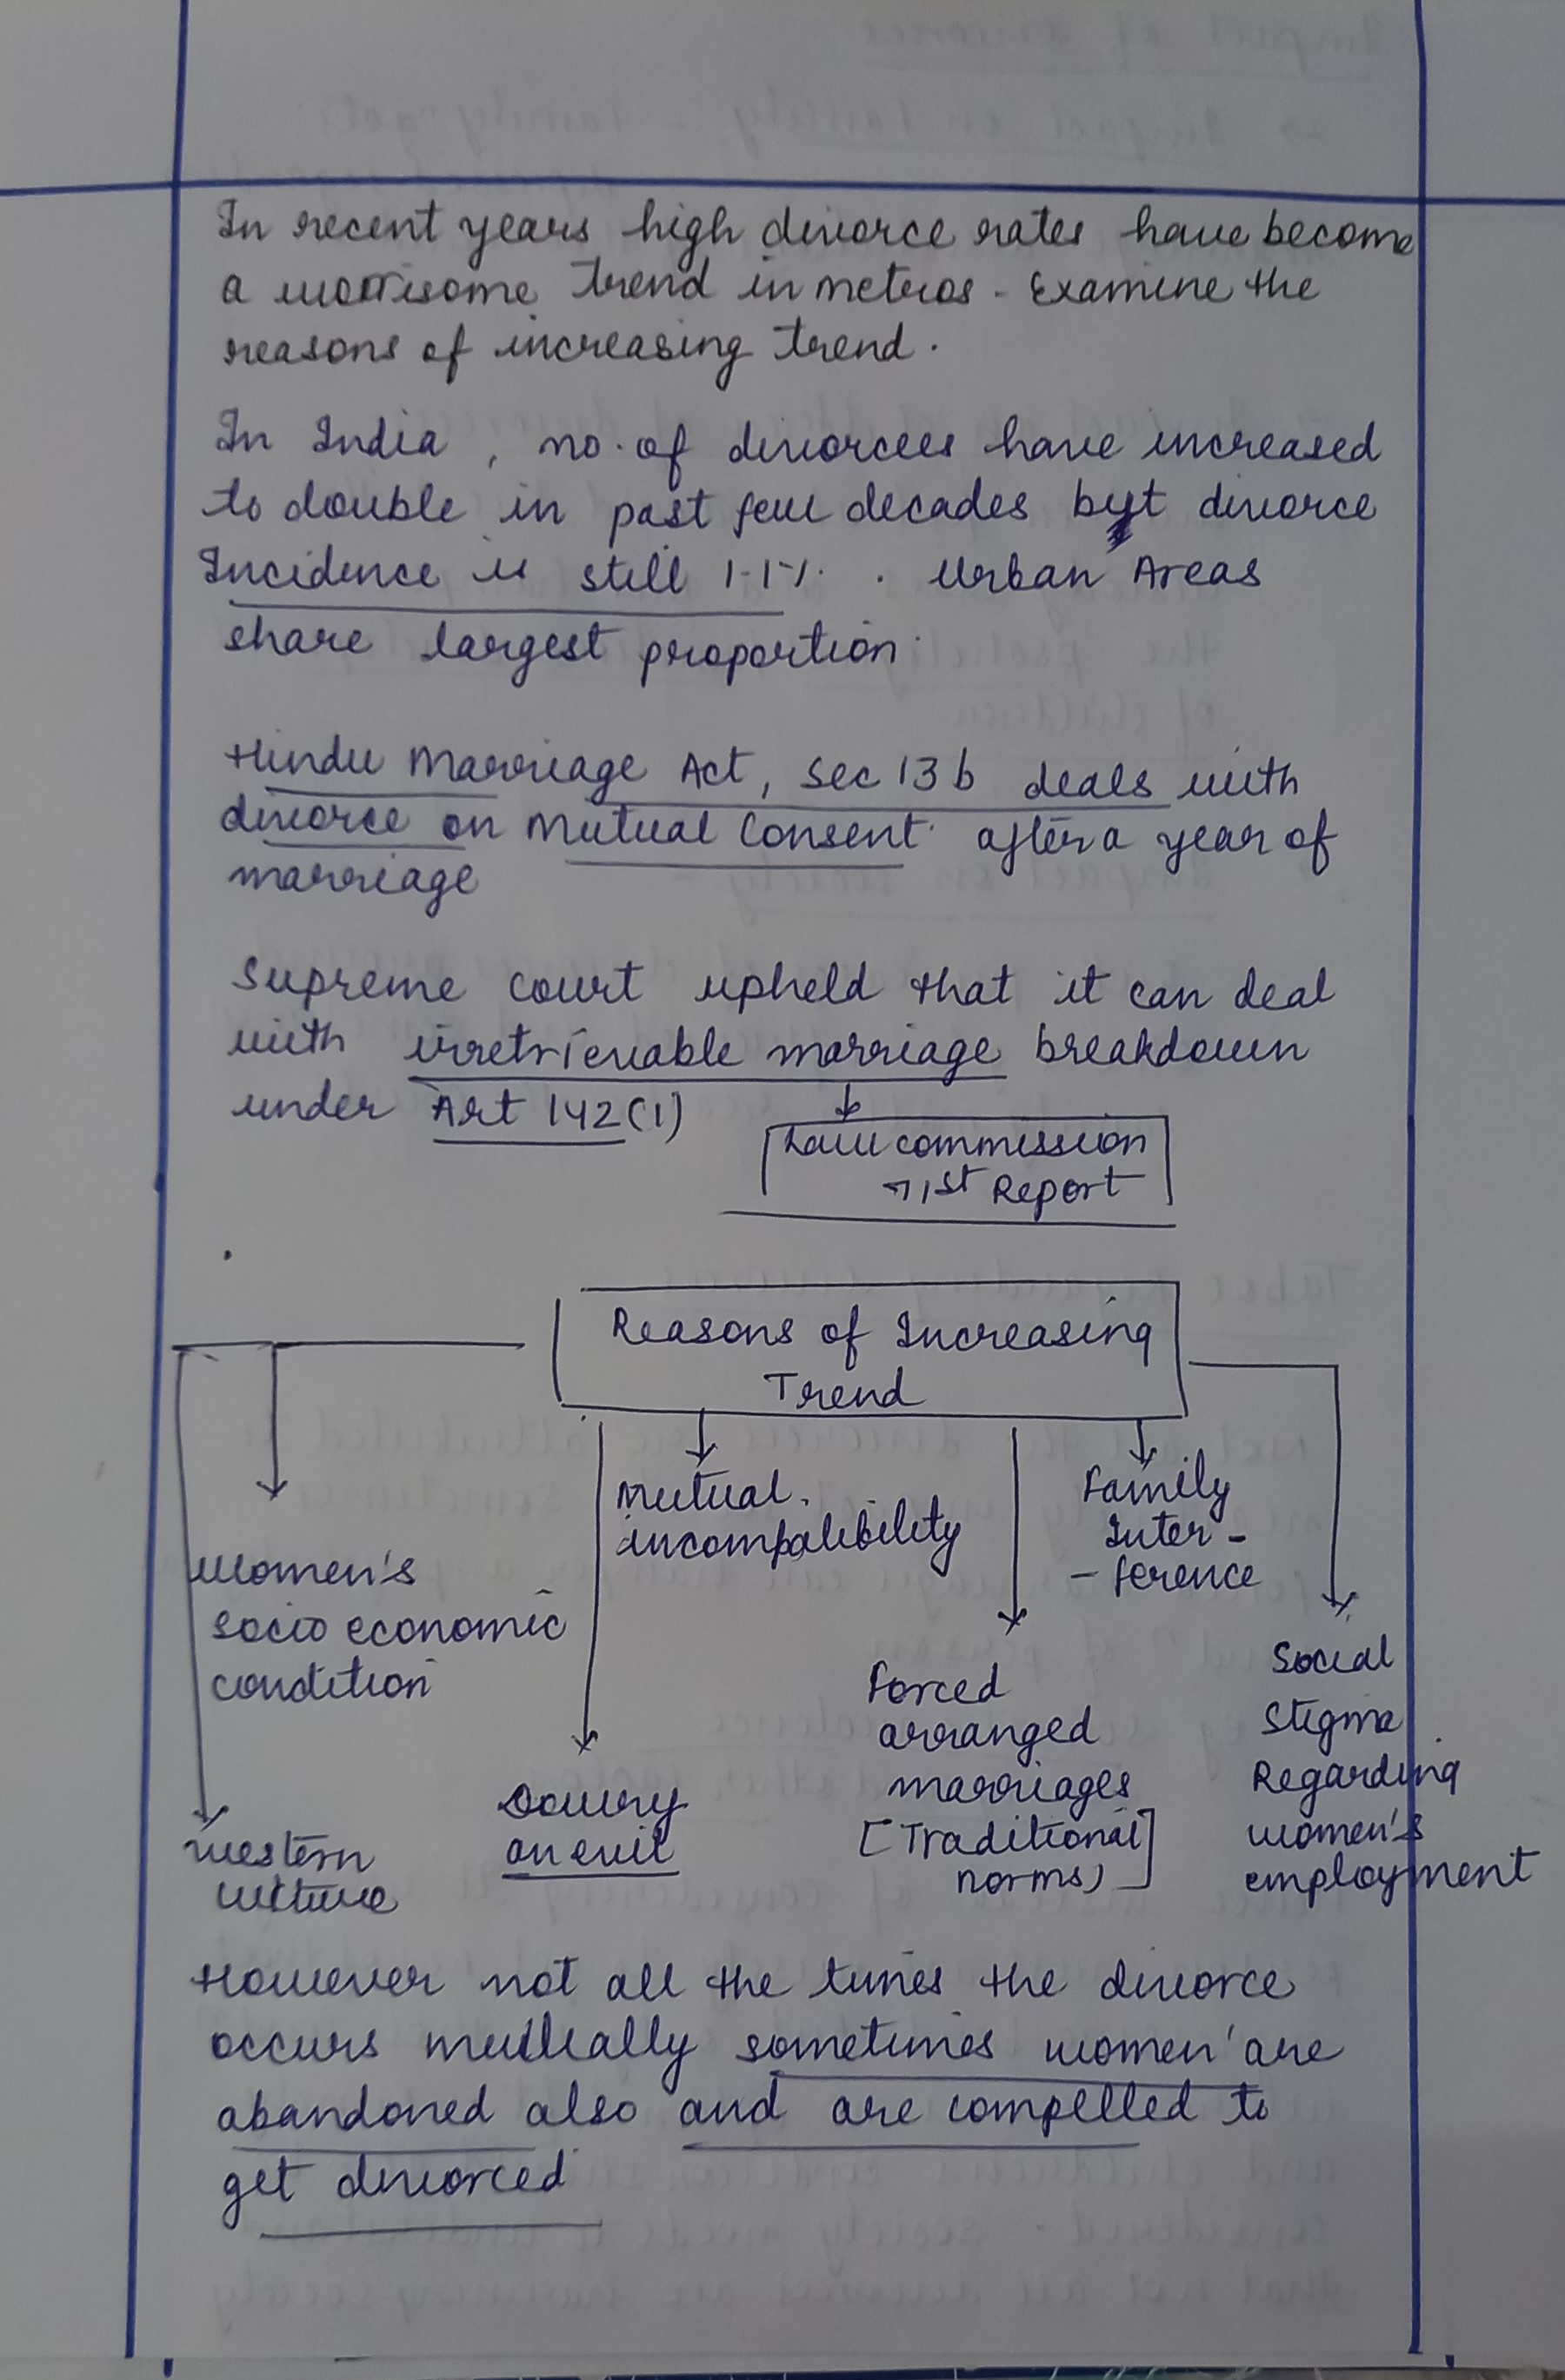 In recent years high divorce rates have become
a worrisome trend in metros - Examine the
reasons of increasing trend.
In India, no. of divorcees have increased
to double in past few decades but divorce
Incidence is still 1.1%. Urban Areas
share largest proportion.
Hindu Marriage Act, Sec 13 b deals with
divorce on Mutual Consent after a year of
marriage
Supreme Court upheld that it can deal
with irretrievable marriage breakdown
under Art 142(1)
Law commission
71st Report
Reasons of Increasing
Trend
Women's
socio economic
condition
Western
culture
Mutual
incompatibility
Dowry
an evil
Forced
arranged
marriages
[Traditional
norms)]
Family
Inter-
-ference
Social
Stigma
Regarding
women's
employment
However not all the times the divorce
occurs mutually sometimes women are
abandoned also and are compelled to
get divorced